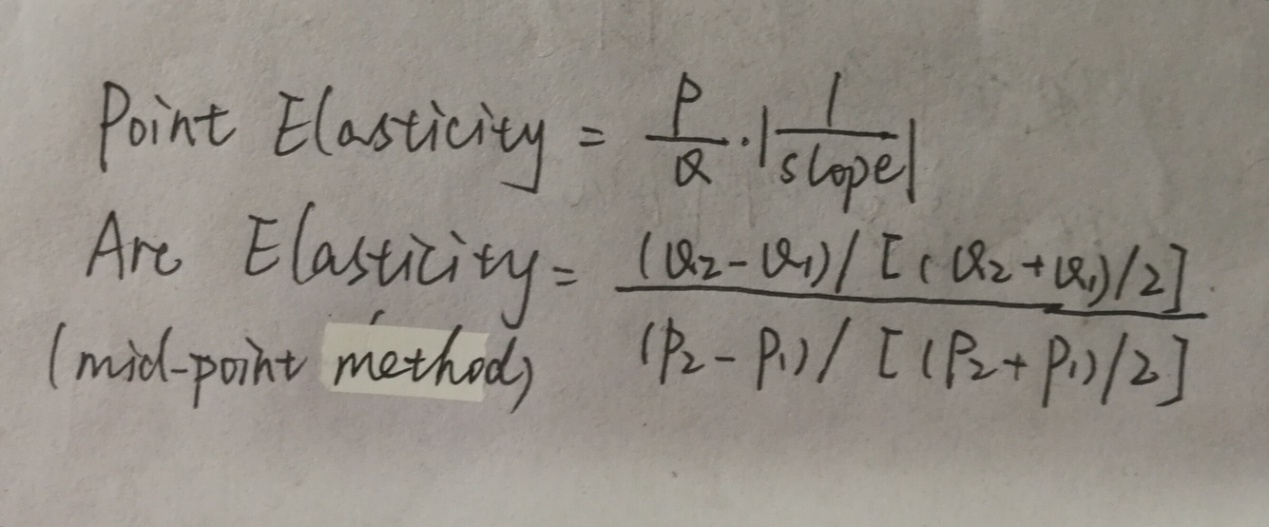 Point Elasticity = P/Q · |1/slope|
Arc Elasticity = (Q2-Q1)/[(Q2+Q1)/2] / (P2-P1)/[(P2+P1)/2]
(mid-point method)